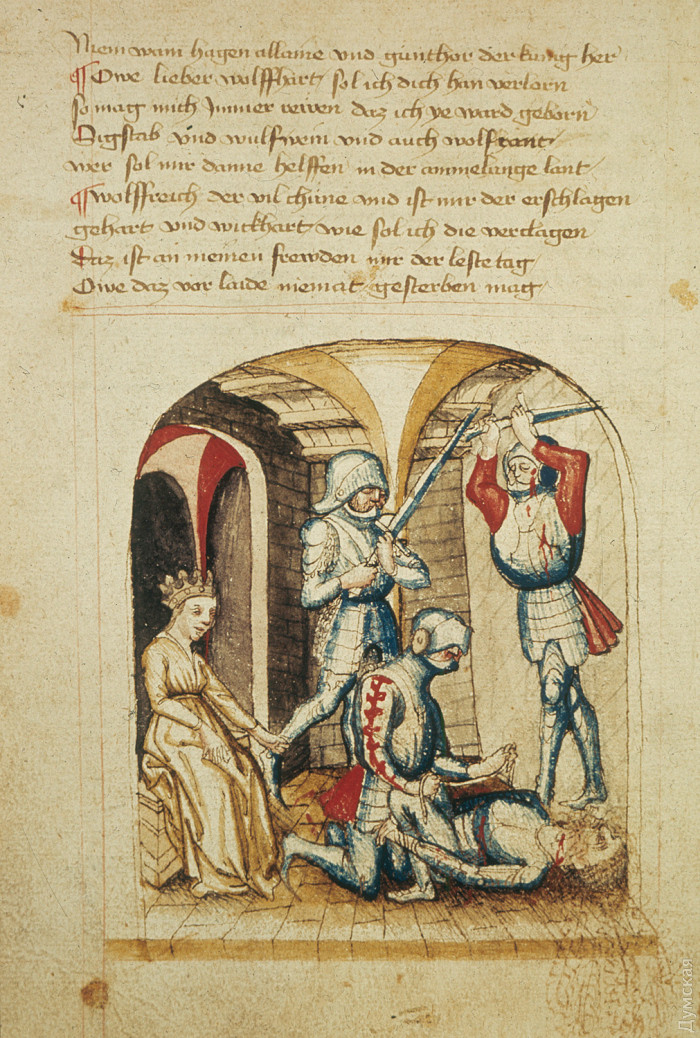 Niem wann hagen allaine vnd günthor der künig her
¶ Owe lieber wolffhart sol ich dich han verlorn
so mag mich Immer rewen daz ich ye ward geborn
Sigstab vnd wulfwein vnd auch wolfrant
wer sol mir danne helffen in der ammelunge lant
¶ wolffreich der vil chüne vnd ist mir der erschlagen
gehart vnd wickhart wie sol ich die verclagen
Daz ist an meinen frewden mir der leste tag
Owe daz vor laide niemat gesterben mag
Думская